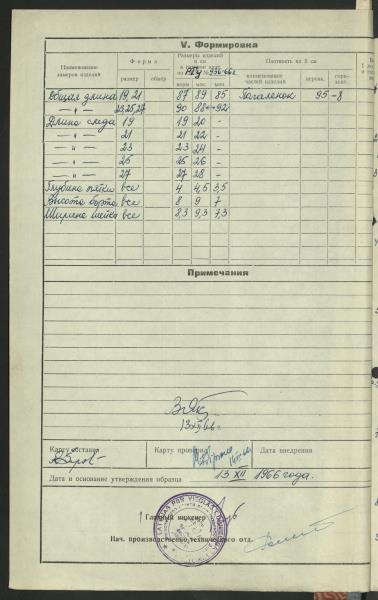 V. Формировка
Наименование замеров изделий
Форма
размер
объер
Размеры изделий в см
РТУ № 936-66г.
норм. мах. мин.
Плотность на 5 см
наименование частей изделий
вертик.
гори-
зонт.
Общая длина 19, 21 87 89 85 Паголенок 95 -8
— " — 23,25,27 90 88 92
Длина следа 19 19 20 -
— " — 21 21 22 -
— " — 23 23 24 -
— " — 25 25 26 -
— " — 27 27 28 -
Глубина пятки все 4 4,5 3,5
Высота борта все 8 9 7
Ширина шейки все 8,3 9,3 7,3
Примечания
13 XII 66 г.
Карту составил
Карту проверил
Дата внедрения
13 XII 1966 года.
Дата и основание утверждения образца
Главный инженер
Нач. производственно-технического отд.